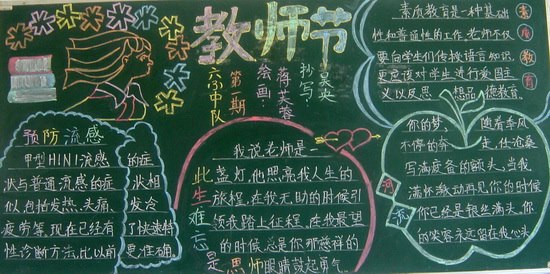 教师节
第一期
六(3)中队
绘画:蒋芙蓉
抄写:
素质教育是一种基础
性和普遍性的工作,老师不仅
要向学生们传授语言知识,
更应该对学生进行爱国主
义以及思想品德教育。
素质教育
预防流感
甲型H1N1流感的症
状与普通流感的症状相
似,包括发热、头痛、发冷
疲劳等,现在已经有了快速特
性诊断方法,比以前更准确。
此生难忘是师恩
我说老师是一
盏灯,他照亮我人生的
旅程,在我无助的时候引
领我踏上征程,在我最望
的时候总是你那慈祥的
眼睛鼓起勇气。
你的梦,随着季风
不停的奔走,任沧桑
写满疲备的额头,当我
满怀激动再见你的时候
你已经是银丝满头,你
的笑容永远留在我心头